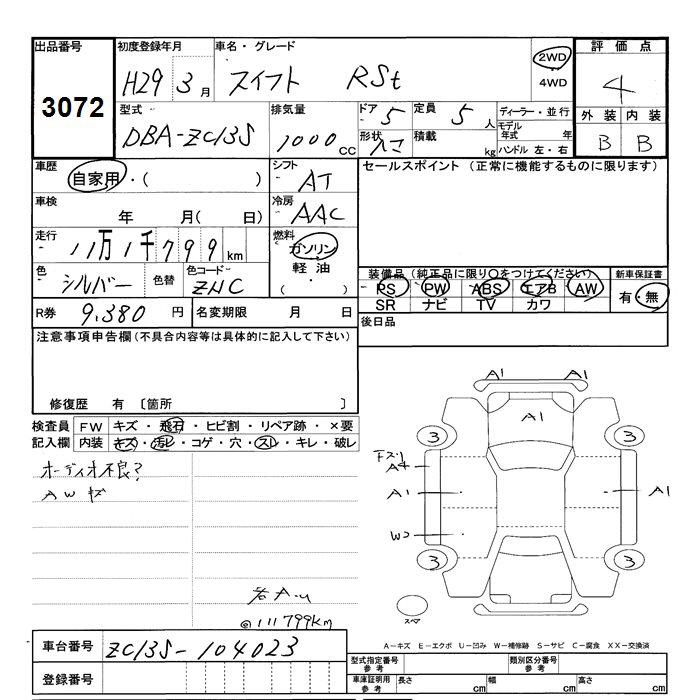 出品番号 初度登録年月 車名・グレード 2WD 評価点
3072 H29 3月 スイフト RSt 4WD 4
型式 排気量 ドア 5 定員 5人 ディーラー・並行 外装 内装
DBA-ZC13S 1000cc 形状 積載 kg モデル年式 年 B B
ハンドル 左・右
車歴 自家用・( ) シフト AT セールスポイント(正常に機能するものに限ります)
車検 年 月( 日) 冷房 AAC
走行 11万1千799km 燃料 ガソリン
軽油
( ・ )
色 シルバー 色替 色コード ZNC 装備品(純正品に限り○をつけてください) 新車保証書
PS PW ABS エアB AW 有・無
SR ナビ TV カワ
R券 9,380円 名変期限 月 日 後日品
注意事項申告欄(不具合内容等は具体的に記入して下さい)
修復歴 有 〔箇所 〕
検査員 FW キズ・飛石・ヒビ割・リペア跡・×要
記入欄 内装 キズ・汚レ・コゲ・穴・スレ・キレ・破レ
オーディオ不良?
AWキズ
@111799km
A1 A1
A1
3 3
下スリ
A4
A1 A1
W2
3 3
スペア
A-キズ E-エクボ U-凹み W-補修跡 S-サビ C-腐食 XX-交換済
車台番号 ZC13S-104023
登録番号
型式指定番号 参考 類別区分番号 参考
車庫証明用 参考 長さ cm 幅 cm 高さ cm